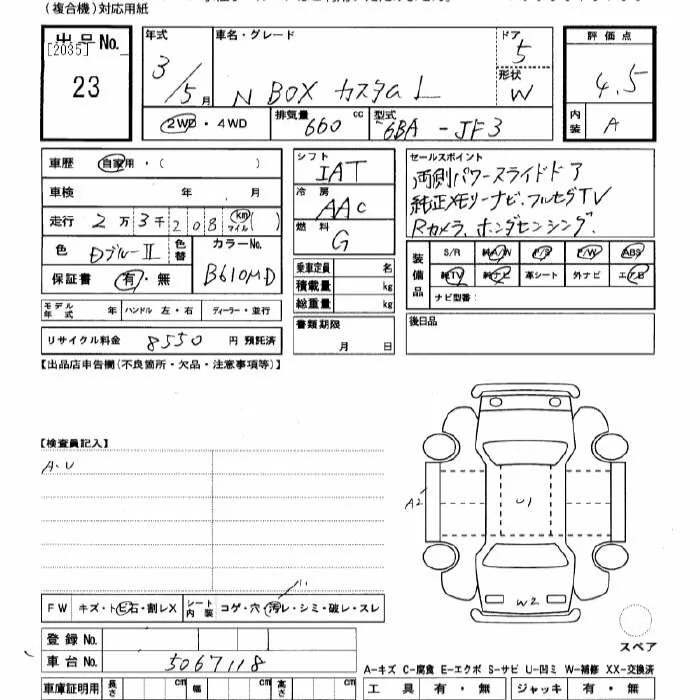 (複合機)対応用紙
出品No.
[2035]
23
年式
3/5月
車名・グレード
N BOX カスタム L
ドア
5
形状
W
評価点
4.5
内装
A
2WD・4WD
排気量 660 cc
型式 6BA - JF3
車歴 自家用・( )
車検 年 月
走行 2万3千208 km マイル( )
色 Dブルー II
色替
カラーNo.
B610M.D
保証書 有・無
モデル年式 年
ハンドル 左・右
ディーラー・並行
リサイクル料金 8550 円 預託済
シフト
IAT
冷房
AAC
燃料
G
乗車定員 名
積載量 kg
総重量 kg
書類期限
月 日
セールスポイント
両側パワースライドドア
純正メモリーナビ、フルセグTV
Rカメラ、ホンダセンシング、
装備品
S/R 純A/W P/S P/W ABS
純TV 純ナビ 革シート 外ナビ エアB
ナビ型番:
後日品
【出品店申告欄(不良箇所・欠品・注意事項等)】
【検査員記入】
A・U
A2
U1
W2
FW キズ・トビ石・割レX
シート内装 コゲ・穴・汚レ・シミ・破レ・スレ
スペア
登録No.
車台No. 5067118
A-キズ C-腐食 E-エクボ S-サビ U-凹ミ W-補修 XX-交換済
車庫証明用 長さ cm 幅 cm 高さ cm
工具 有・無 ジャッキ 有・無